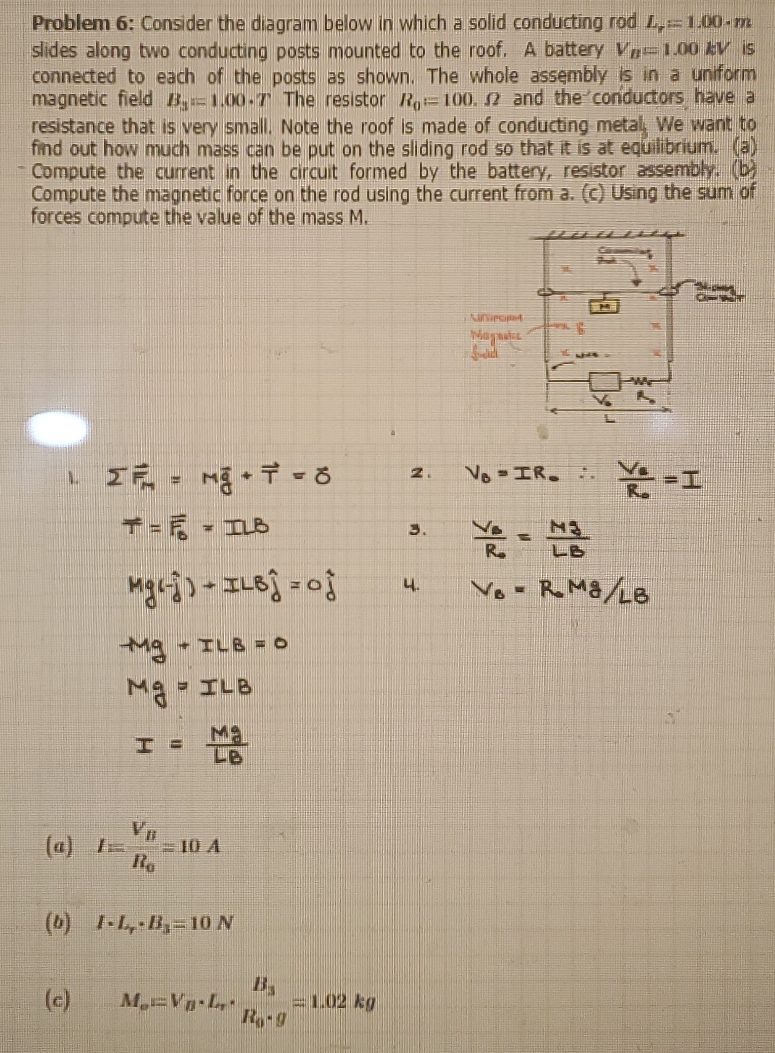 Problem 6: Consider the diagram below in which a solid conducting rod L_r:=1.00·m
slides along two conducting posts mounted to the roof. A battery V_B:=1.00 kV is
connected to each of the posts as shown. The whole assembly is in a uniform
magnetic field B_3:=1.00·T The resistor R_0:=100. Ω and the conductors have a
resistance that is very small. Note the roof is made of conducting metal. We want to
find out how much mass can be put on the sliding rod so that it is at equilibrium. (a)
Compute the current in the circuit formed by the battery, resistor assembly. (b)
Compute the magnetic force on the rod using the current from a. (c) Using the sum of
forces compute the value of the mass M.
M
Uniform
Magnetic
field
B
V_B R_0
L
1. ΣF⃗_M = Mg⃗ + T⃗ = 0⃗
T⃗ = F⃗_B = ILB
Mg(-ĵ) + ILBĵ = 0ĵ
-Mg + ILB = 0
Mg = ILB
I = Mg/LB
2. V_B = IR_0 ∴ V_B/R_0 = I
3. V_B/R_0 = Mg/LB
4. V_B = R_0Mg/LB
(a) I:=V_B/R_0=10 A
(b) I·L_r·B_3=10 N
(c) M_o:=V_B·L_r·B_3/(R_0·g)=1.02 kg